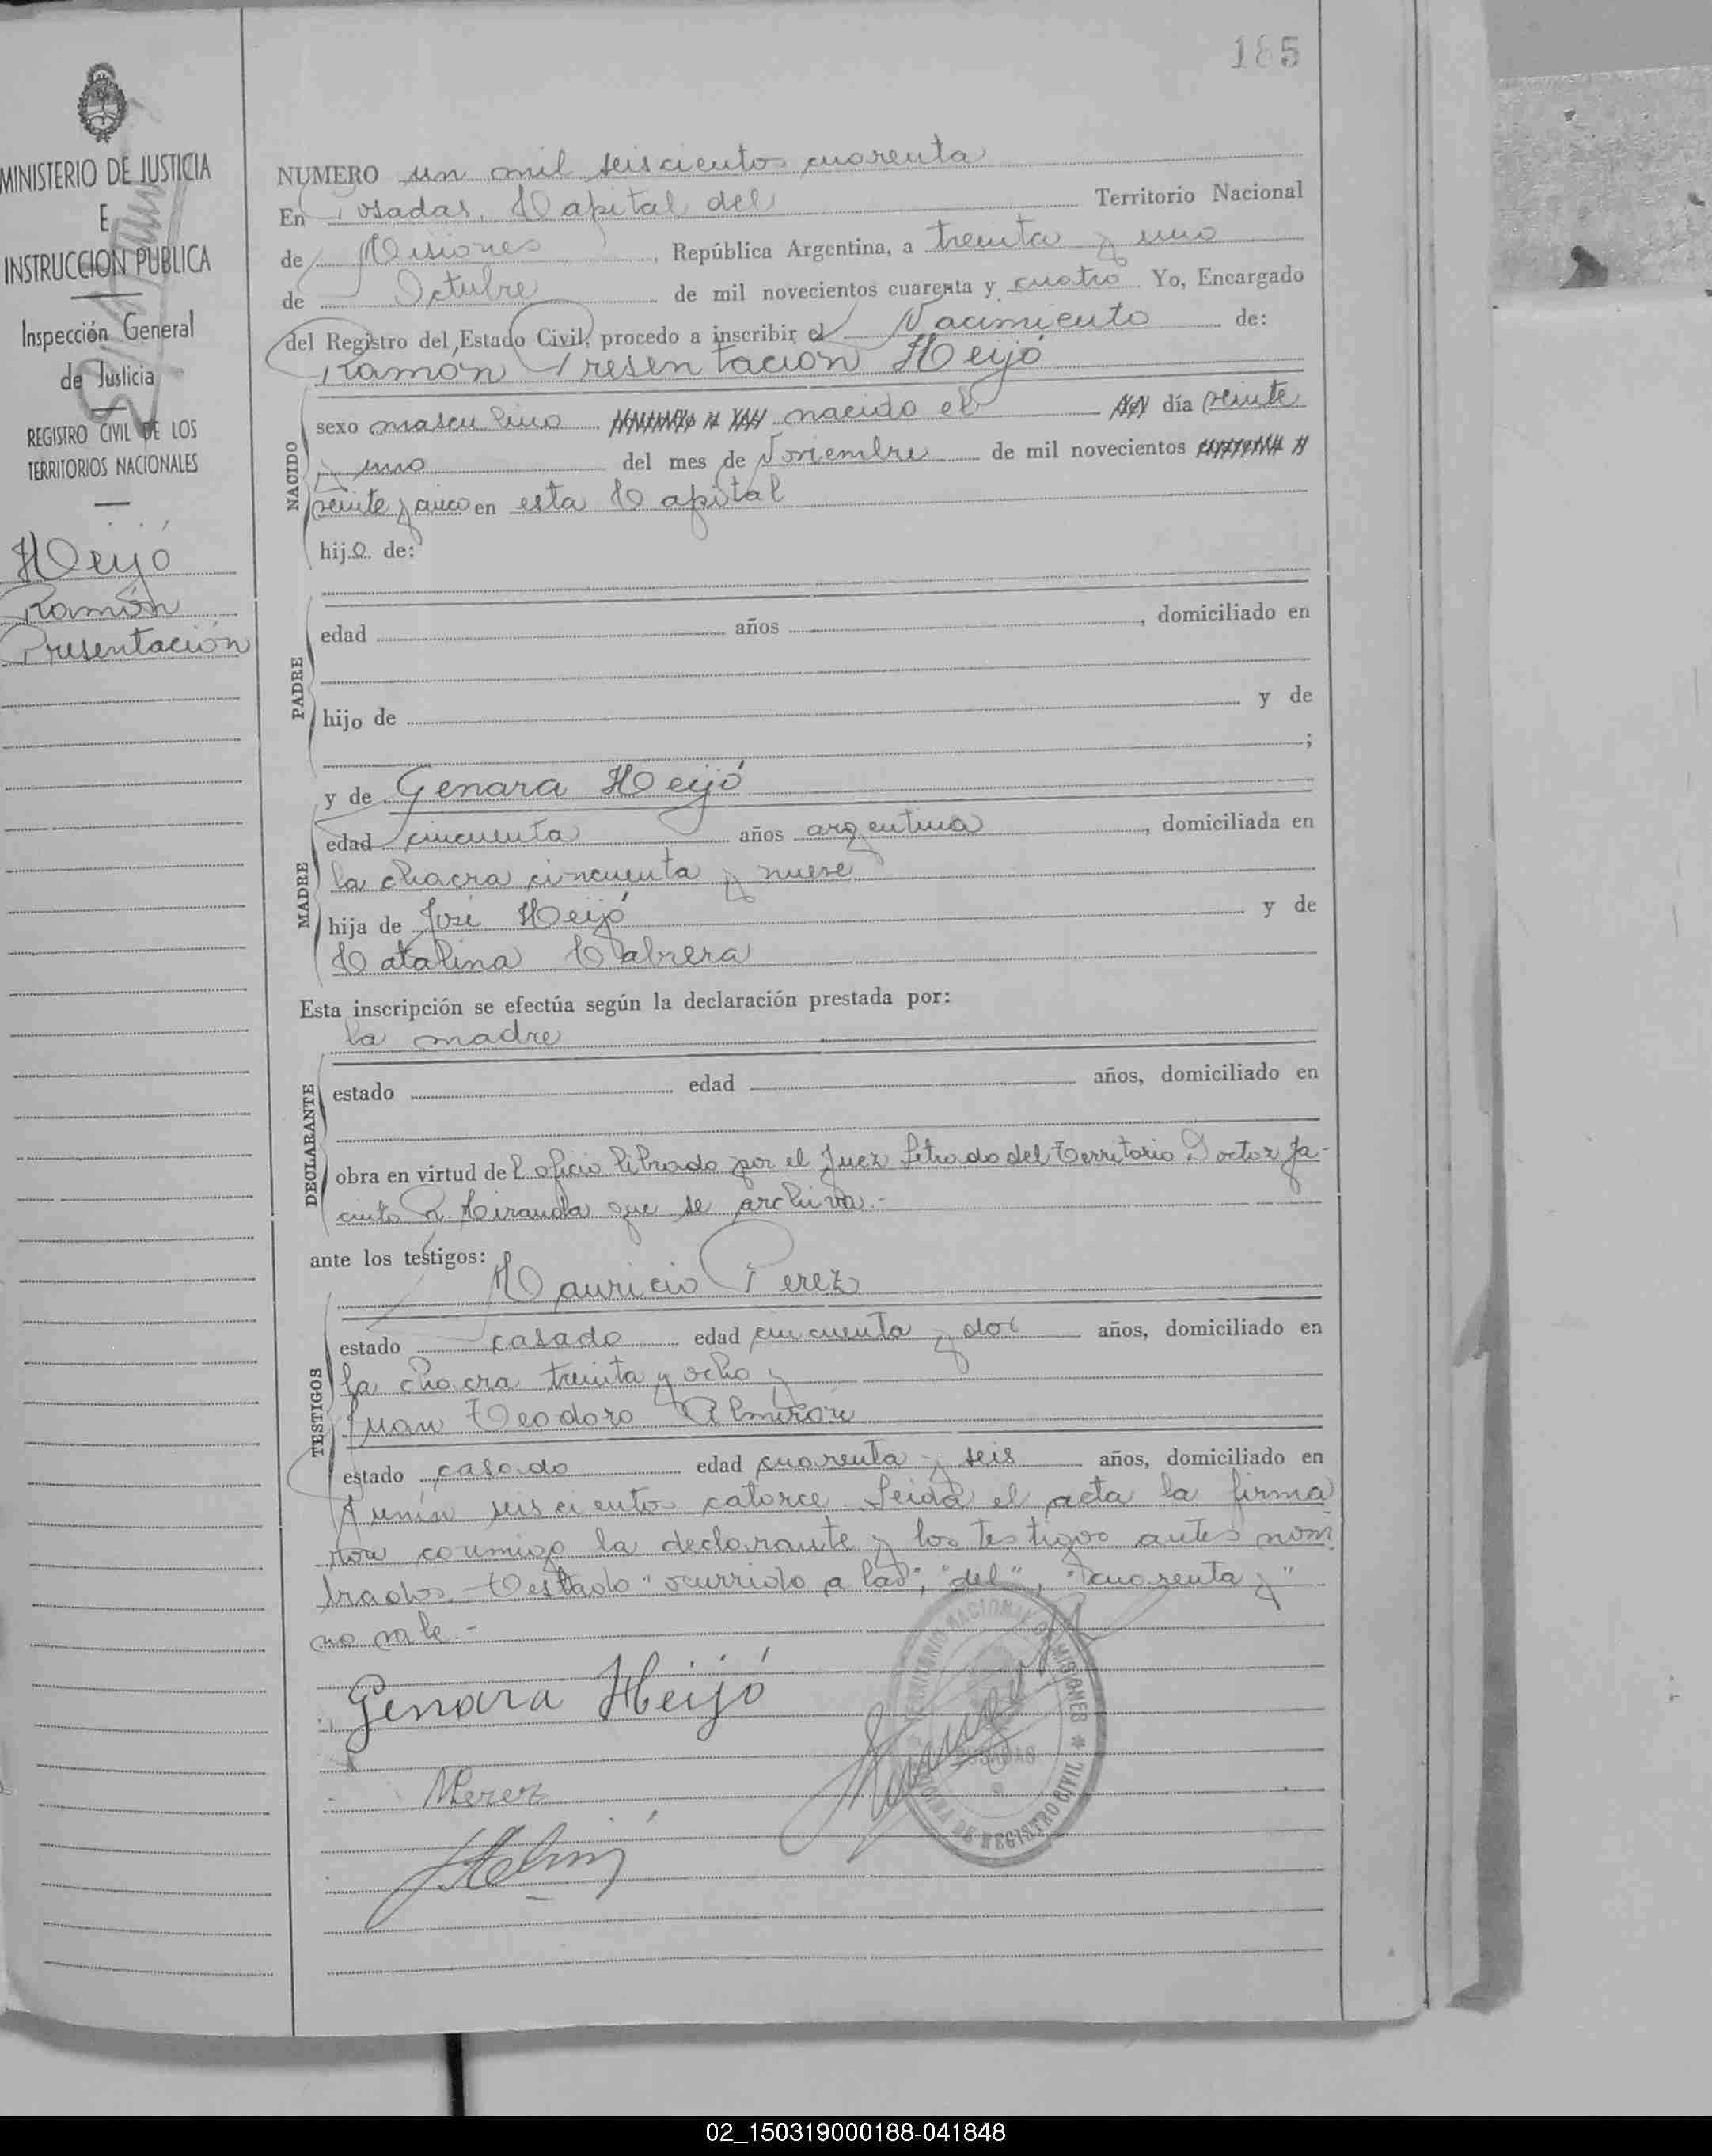 185
MINISTERIO DE JUSTICIA
E
INSTRUCCION PUBLICA
Inspección General
de Justicia
REGISTRO CIVIL DE LOS
TERRITORIOS NACIONALES
Meijó
Ramón
Presentación
NUMERO un mil seiscientos cuarenta
En Posadas, Capital del Territorio Nacional
de Misiones, República Argentina, a treinta y uno
de Octubre de mil novecientos cuarenta y cuatro Yo, Encargado
del Registro del Estado Civil, procedo a inscribir el Nacimiento de:
Ramón Presentación Meijó
NACIDO
sexo masculino nacido el día veinte
y uno del mes de Noviembre de mil novecientos
veinte y cinco en esta Capital
hijo de:
PADRE
edad años , domiciliado en
hijo de y de
;
y de Genara Meijó
MADRE
edad cincuenta años argentina, domiciliada en
la chacra cincuenta y nueve
hija de José Meijó y de
Catalina Cabrera
Esta inscripción se efectúa según la declaración prestada por:
la madre
DECLARANTE
estado edad años, domiciliado en
obra en virtud del oficio librado por el Juez Letrado del Territorio Doctor Ja-
cinto R. Miranda que se archiva.-
ante los testigos:
Mauricio Perez
TESTIGOS
estado casado edad cincuenta y dos años, domiciliado en
la chacra treinta y ocho y
Juan Teodoro Almirón
estado casado edad cuarenta y seis años, domiciliado en
Junín seiscientos catorce. Leida el acta la firma
ron conmigo la declarante y los testigos antes nom
brados.- Testado "ocurrido a las", "del", "cuarenta y"
no vale.-
Genara Meijó
MPerez
TERRITORIO NACIONAL DE MISIONES
POSADAS
OFICINA DE REGISTRO CIVIL
02_150319000188-041848